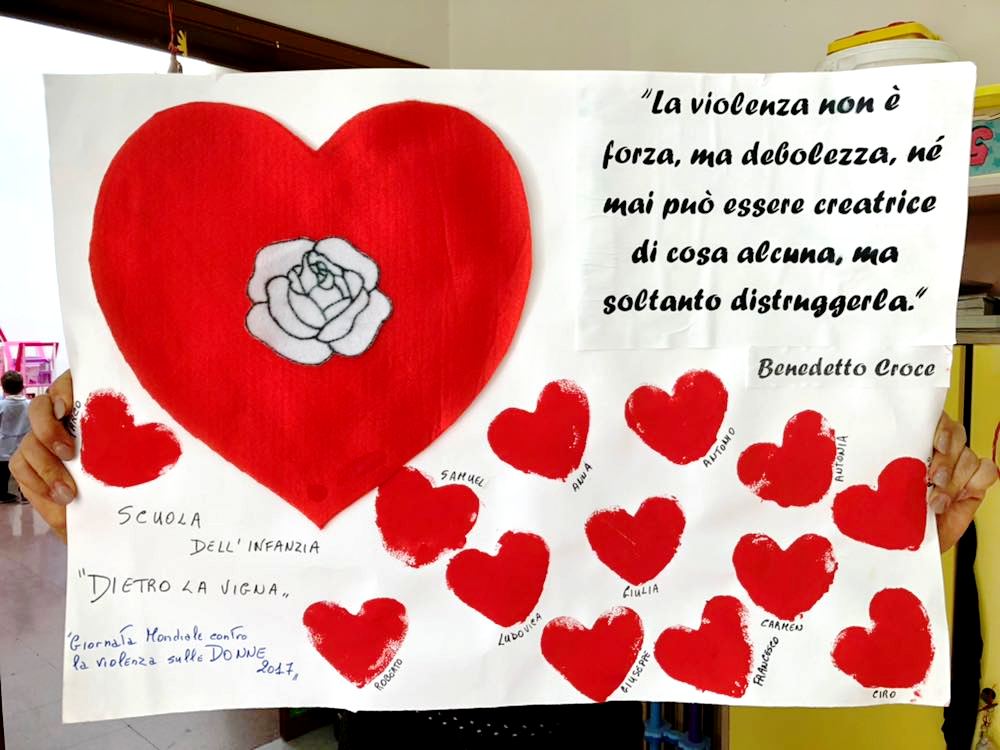 "La violenza non è
forza, ma debolezza, né
mai può essere creatrice
di cosa alcuna, ma
soltanto distruggerla."
Benedetto Croce
SAMUEL
ANNA
ANTONIO
ANTONIA
SCUOLA
DELL'INFANZIA
"DIETRO LA VIGNA"
"Giornata Mondiale contro
la violenza sulle DONNE
2017"
ROBERTO
LUDOVICA
GIULIA
GIUSEPPE
FRANCESCO
CARMEN
CIRO